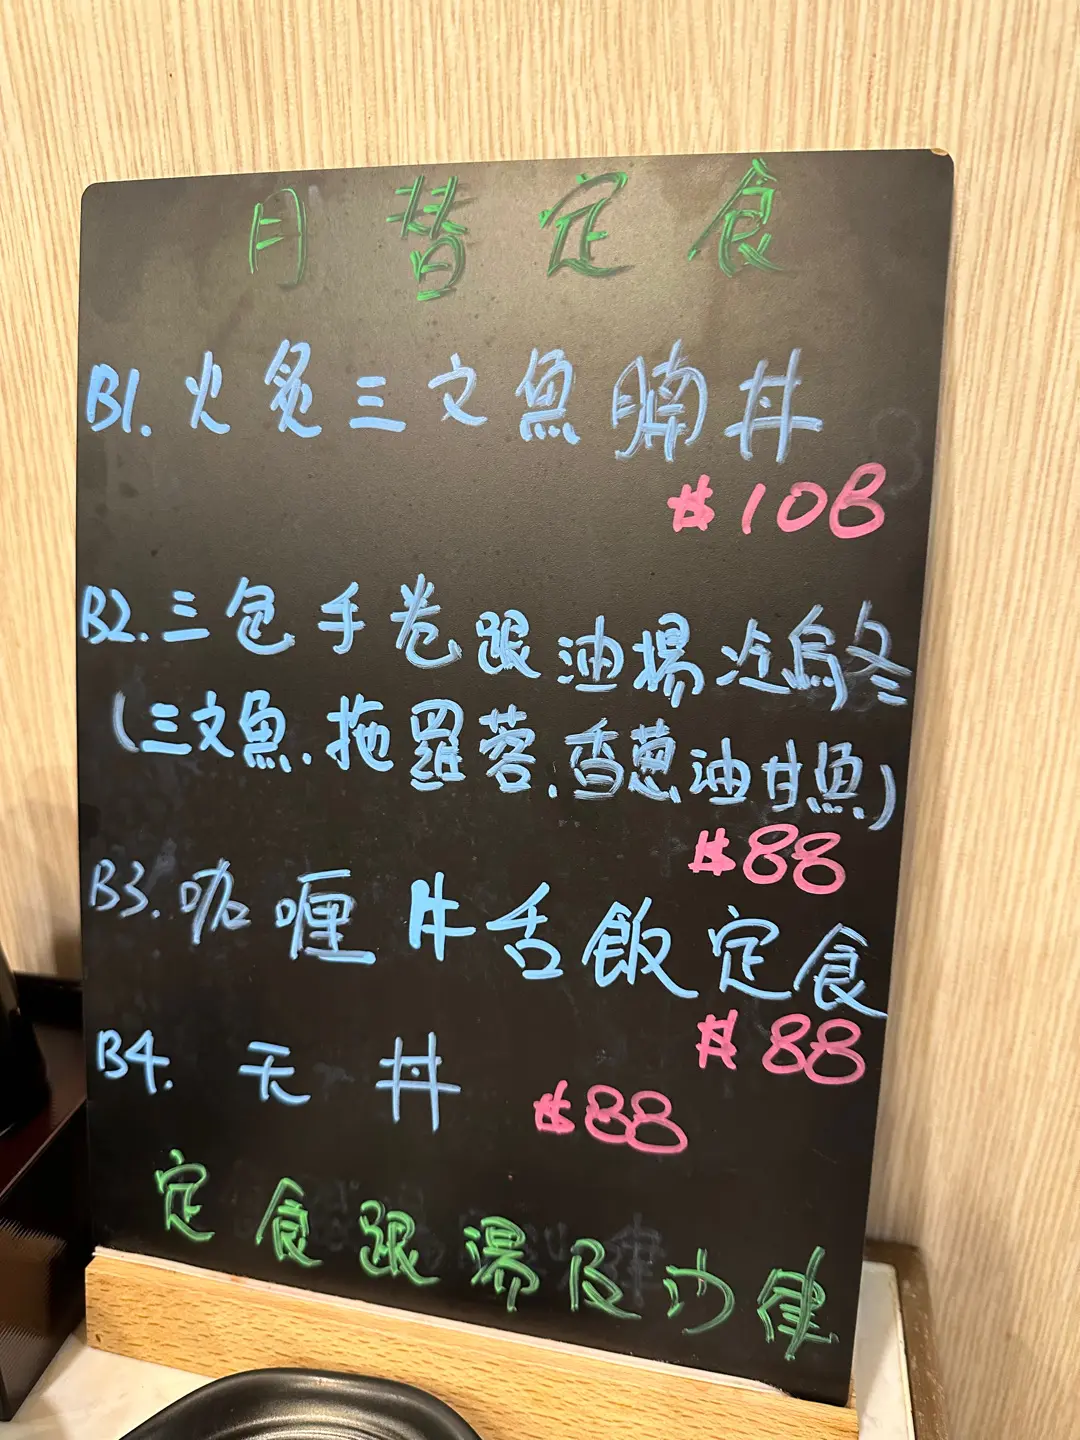 月替定食
B1. 火炙三文魚腩丼
$108
B2. 三色手卷跟油揚冷烏冬
(三文魚.拖羅蓉.香蔥油甘魚)
$88
B3. 咖喱牛舌飯定食
$88
B4. 天丼 $88
定食跟湯及沙律